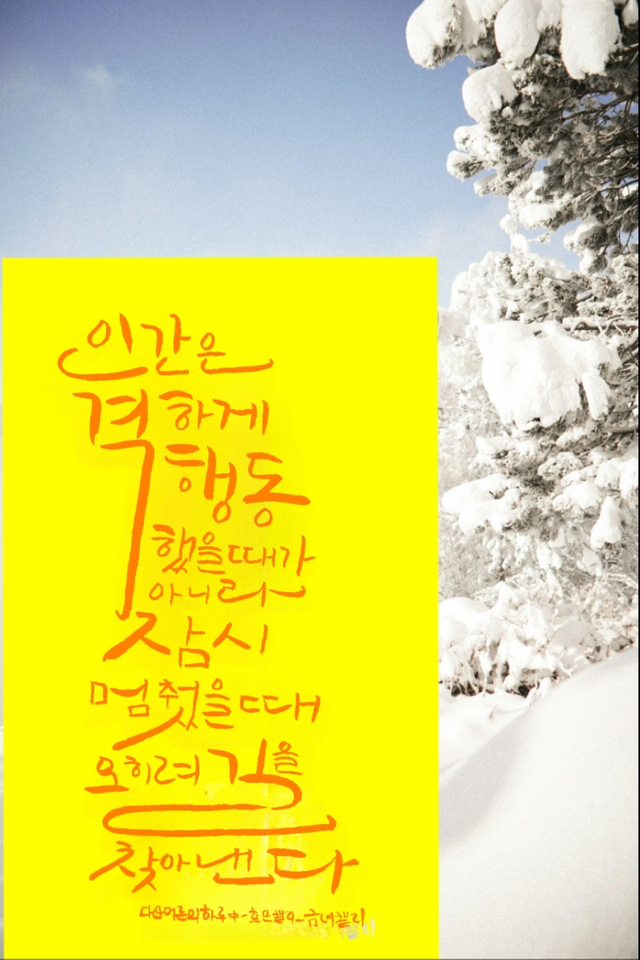 인간은
격하게
행동
했을때가
아니라
잠시
멈췄을때
오히려 길을
찾아낸다
다산어른의하루中